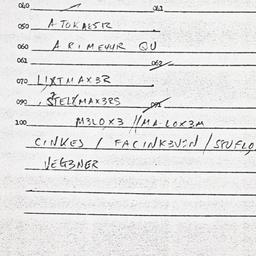 040 041
050 ATOKAESR
060 ARIMEVUR QU
061 062
070 LIXTMAX3R
090 , STELYMAX3RS 091
100 M3LOX3 // MA-LOX3M
CINKES / FACINK3VIN / SBUFLO
VEG3NER